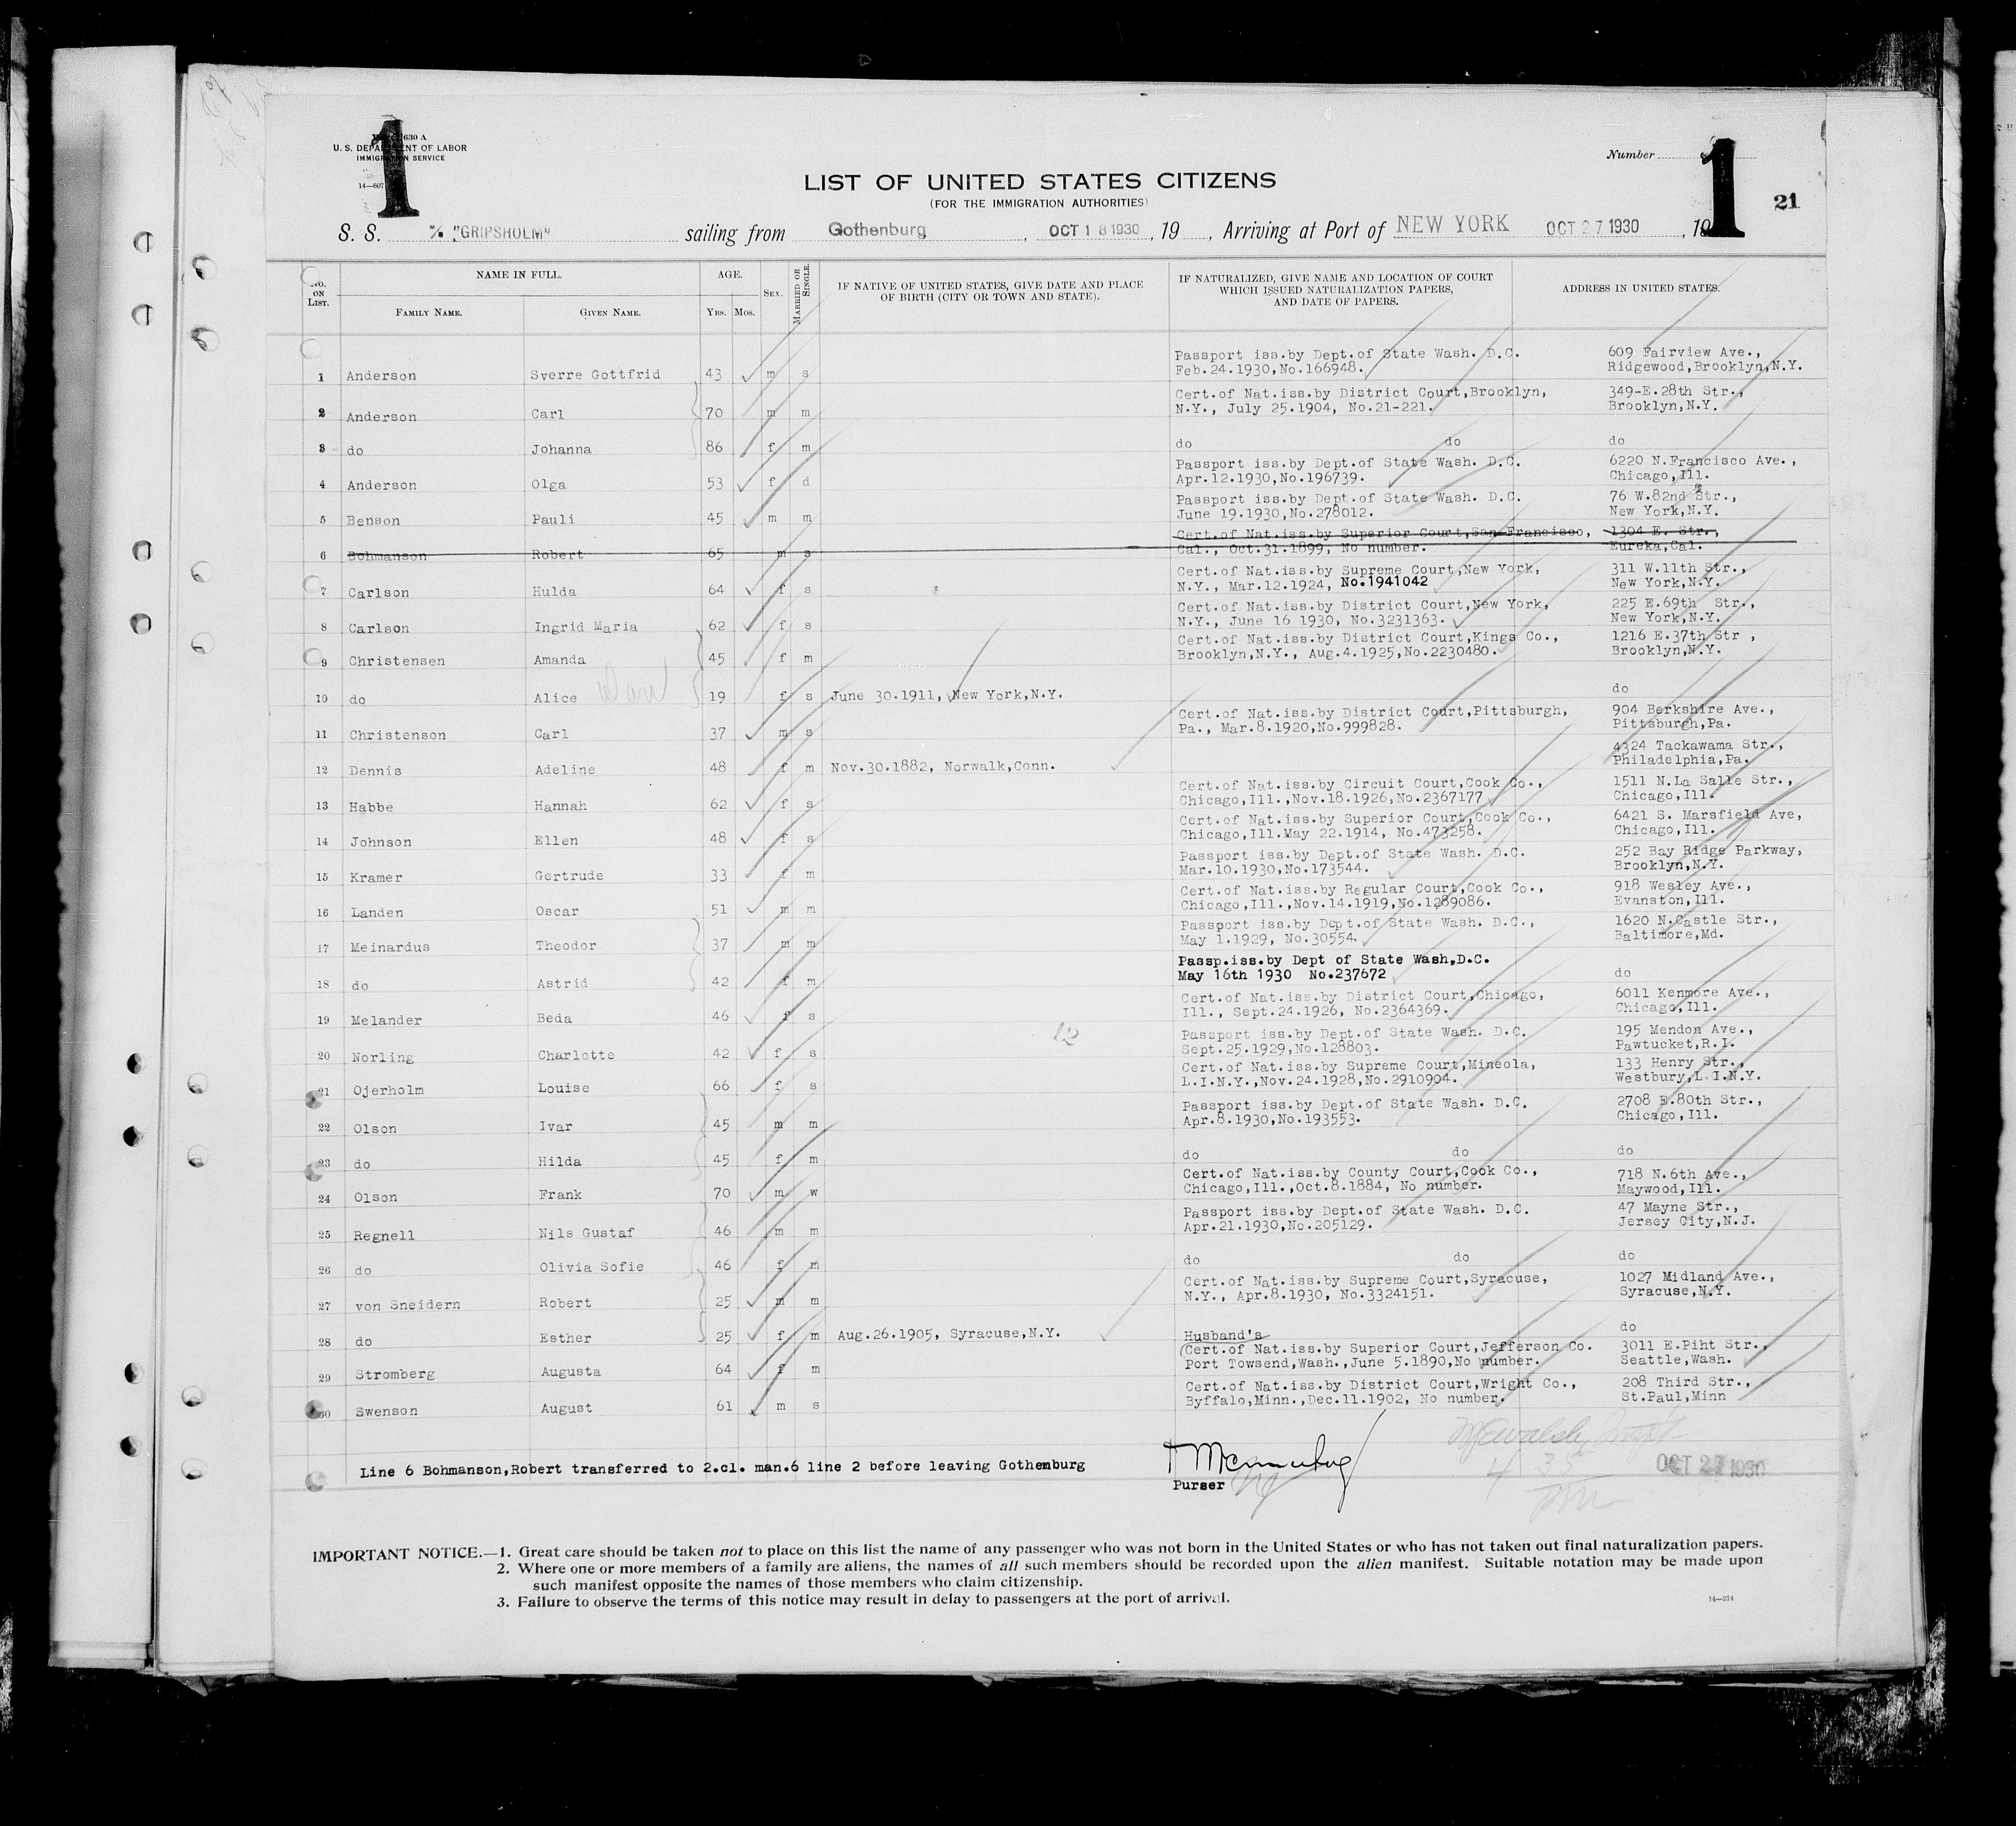 1
630 A
U. S. DEPARTMENT OF LABOR
IMMIGRATION SERVICE
14—607
Number
1
21
LIST OF UNITED STATES CITIZENS
(FOR THE IMMIGRATION AUTHORITIES)
S. S. "GRIPSHOLM" sailing from Gothenburg, OCT 18 1930, 19 , Arriving at Port of NEW YORK OCT 27 1930, 19
No. ON LIST.
NAME IN FULL.
FAMILY NAME. GIVEN NAME.
AGE.
YRS. MOS.
SEX.
MARRIED OR SINGLE.
IF NATIVE OF UNITED STATES, GIVE DATE AND PLACE
OF BIRTH (CITY OR TOWN AND STATE).
IF NATURALIZED, GIVE NAME AND LOCATION OF COURT
WHICH ISSUED NATURALIZATION PAPERS,
AND DATE OF PAPERS.
ADDRESS IN UNITED STATES.
Passport iss.by Dept.of State Wash. D.C. 609 Fairview Ave.,
1 Anderson Sverre Gottfrid 43 m s Feb.24.1930,No.166948. Ridgewood,Brooklyn,N.Y.
Cert.of Nat.iss.by District Court,Brooklyn, 349-E.28th Str.,
2 Anderson Carl 70 m m N.Y., July 25.1904, No.21-221. Brooklyn,N.Y.
3 do Johanna 86 f m do do do
Passport iss.by Dept.of State Wash. D.C. 6220 N.Francisco Ave.,
4 Anderson Olga 53 f d Apr.12.1930,No.196739. Chicago,Ill.
Passport iss.by Dept.of State Wash. D.C. 76 W.82nd Str.,
5 Benson Pauli 45 m m June 19.1930,No.278012. New York,N.Y.
Cert.of Nat.iss.by Superior Court,San Francisco, 1304 E. Str.,
6 Bohmanson Robert 65 m s Cal., Oct.31.1899, No number. Eureka,Cal.
Cert.of Nat.iss.by Supreme Court,New York, 311 W.11th Str.,
7 Carlson Hulda 64 f s N.Y., Mar.12.1924, No.1941042 New York,N.Y.
Cert.of Nat.iss.by District Court,New York, 225 E.69th Str.,
8 Carlson Ingrid Maria 62 f s N.Y., June 16 1930, No.3231363. New York,N.Y.
Cert.of Nat.iss.by District Court,Kings Co., 1216 E.37th Str ,
9 Christensen Amanda 45 f m Brooklyn,N.Y., Aug.4.1925,No.2230480. Brooklyn,N.Y.
10 do Alice 19 f s June 30.1911, New York,N.Y. do
Cert.of Nat.iss.by District Court,Pittsburgh, 904 Berkshire Ave.,
11 Christenson Carl 37 m s Pa., Mar.8.1920,No.999828. Pittsburgh,Pa.
4324 Tackawama Str.,
12 Dennis Adeline 48 f m Nov.30.1882, Norwalk,Conn. Philadelphia,Pa.
Cert.of Nat.iss.by Circuit Court,Cook Co., 1511 N.La Salle Str.,
13 Habbe Hannah 62 f s Chicago,Ill.,Nov.18.1926,No.2367177 Chicago,Ill.
Cert.of Nat.iss.by Superior Court,Cook Co., 6421 S. Marsfield Ave,
14 Johnson Ellen 48 f s Chicago,Ill.May 22.1914, No.473258. Chicago,Ill.
Passport iss.by Dept.of State Wash. D.C. 252 Bay Ridge Parkway,
15 Kramer Gertrude 33 f m Mar.10.1930,No.173544. Brooklyn,N.Y.
Cert.of Nat.iss.by Regular Court,Cook Co., 918 Wesley Ave.,
16 Landen Oscar 51 m m Chicago,Ill.,Nov.14.1919,No.1289086. Evanston,Ill.
Passport iss.by Dept.of State Wash. D.C., 1620 N.Castle Str.,
17 Meinardus Theodor 37 m m May 1.1929, No.30554. Baltimore,Md.
Passp.iss.by Dept of State Wash,D.C.
18 do Astrid 42 f m May 16th 1930 No.237672 do
Cert.of Nat.iss.by District Court,Chicago, 6011 Kenmore Ave.,
19 Melander Beda 46 f s Ill., Sept.24.1926, No.2364369. Chicago,Ill.
12
Passport iss.by Dept.of State Wash. D.C. 195 Mendon Ave.,
20 Norling Charlotte 42 f s Sept.25.1929,No.128803. Pawtucket,R.I.
Cert.of Nat.iss.by Supreme Court,Mineola, 133 Henry Str.,
21 Ojerholm Louise 66 f s L.I.N.Y.,Nov.24.1928,No.2910904. Westbury,L.I.N.Y.
Passport iss.by Dept.of State Wash. D.C. 2708 E.80th Str.,
22 Olson Ivar 45 m m Apr.8.1930,No.193553. Chicago,Ill.
23 do Hilda 45 f m do do do
Cert.of Nat.iss.by County Court,Cook Co., 718 N.6th Ave.,
24 Olson Frank 70 m w Chicago,Ill.,Oct.8.1884, No number. Maywood,Ill.
Passport iss.by Dept.of State Wash. D.C. 47 Mayne Str.,
25 Regnell Nils Gustaf 46 m m Apr.21.1930,No.205129. Jersey City,N.J.
26 do Olivia Sofie 46 f m do do do
Cert.of Nat.iss.by Supreme Court,Syracuse, 1027 Midland Ave.,
27 von Sneidern Robert 25 m m N.Y., Apr.8.1930, No.3324151. Syracuse,N.Y.
28 do Esther 25 f m Aug.26.1905, Syracuse,N.Y. Husband's do
(Cert.of Nat.iss.by Superior Court,Jefferson Co. 3011 E.Piht Str.,
29 Stromberg Augusta 64 f m Port Towsend,Wash.,June 5.1890,No number. Seattle,Wash.
Cert.of Nat.iss.by District Court,Wright Co., 208 Third Str.,
30 Swenson August 61 m s Byffalo,Minn.,Dec.11.1902, No number. St.Paul,Minn
Line 6 Bohmanson,Robert transferred to 2.cl. man.6 line 2 before leaving Gothenburg
Purser
4 35
OCT 27 1930
IMPORTANT NOTICE.—1. Great care should be taken not to place on this list the name of any passenger who was not born in the United States or who has not taken out final naturalization papers.
2. Where one or more members of a family are aliens, the names of all such members should be recorded upon the alien manifest. Suitable notation may be made upon
such manifest opposite the names of those members who claim citizenship.
3. Failure to observe the terms of this notice may result in delay to passengers at the port of arrival.
14—214